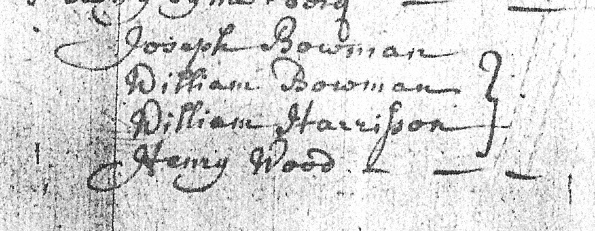 Joseph Bowman
William Bowman
William Harrisson
Henry Wood